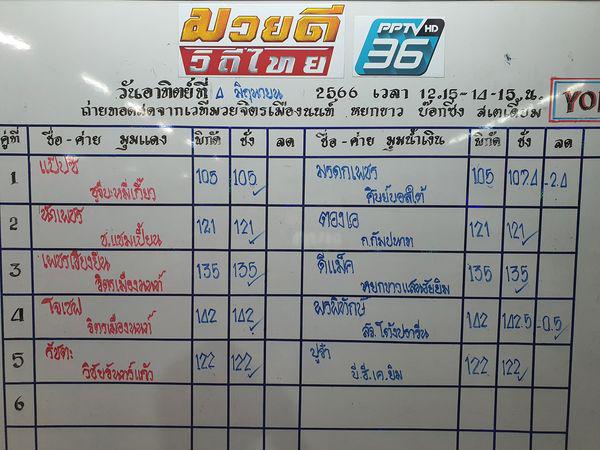 มวยดี
วิถีไทย
PPTV HD
36
วันอาทิตย์ที่ 4 มิถุนายน 2566 เวลา 12.15-14-15.น.
ถ่ายทอดสดจากเวทีมวยจิตรเมืองนนท์ หยกขาว บ๊อกซิ่ง สเตเดี้ยม
คู่ที่ ชื่อ-ค่าย มุมแดง พิกัด ชั่ง ลด ชื่อ-ค่าย มุมน้ำเงิน พิกัด ชั่ง ลด
1 แป๊ปซี่ 105 105 มรดกเพชร 105 107.4 -2.4
ชูจีบะหมี่เกี๊ยว ศิษย์บอสใต้
2 นักเพชร 121 121 ตองเอ 121 121
ช.แชมเปี้ยน ก.กัมปนาท
3 เพชรเสี่ยงยิน 135 135 ดีแม็ค 135 135
จิตรเมืองนนท์ หยกขาวแสนชัยยิม
4 โจเซฟ 142 142 พรพิทักษ์ 142 142.5 -0.5
จิตรเมืองนนท์ สจ.โต้งปราจีน
5 122 122 ปูจ๋า 122 122
วิชัยจันทร์แก้ว บี.ซี.เค.ยิม
6